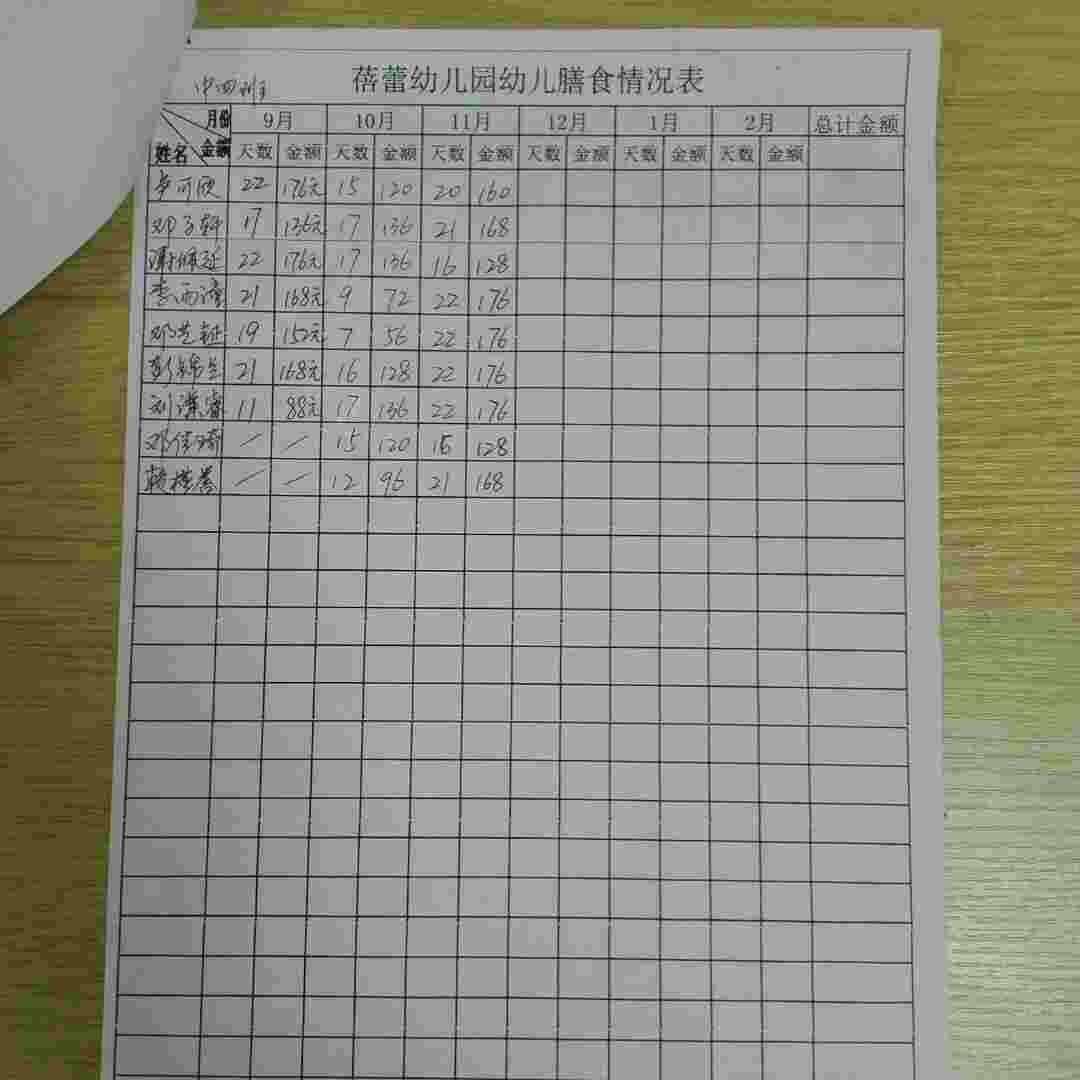 中四班 蓓蕾幼儿园幼儿膳食情况表
月份 9月 10月 11月 12月 1月 2月 总计金额
姓名 金额 天数 金额 天数 金额 天数 金额 天数 金额 天数 金额 天数 金额
可欣 22 176元 15 120 20 160
邓子轩 17 136元 17 136 21 168
谢 延 22 176元 17 136 16 128
李雨潼 21 168元 9 72 22 176
邓芝钲 19 152元 7 56 22 176
彭 21 168元 16 128 22 176
刘 睿 11 88元 17 136 22 176
邓佳琦 / / 15 120 128
赖 / / 12 96 21 168